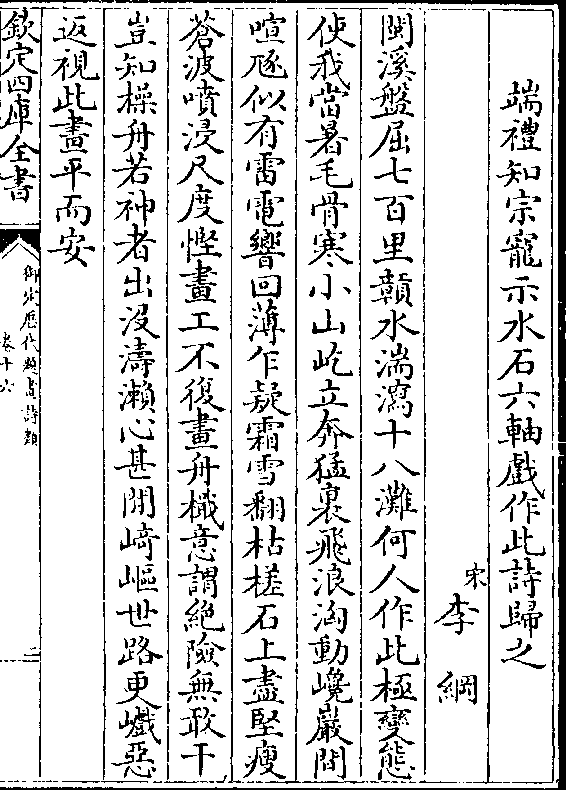 端禮知宗寵示水石六軸戲作此詩歸之
宋李綱
閩溪盤屈七百里贑水湍瀉十八灘何人作此極變態
使我當暑毛骨寒小山屹立奔猛裏飛浪洶動巉巖間
喧豗似有雷電響回薄乍疑霜雪翻枯槎石上盡堅瘦
蒼波噴浸尺度慳畫工不復畫舟檝意謂絶險無敢干
豈知操舟若神者出沒濤瀨心甚閒﨑嶇世路更巇惡
返視此畫平而安
欽定四庫全書
御定歴代題畫詩類
卷十六
二